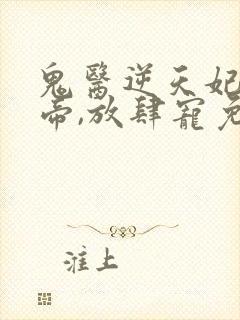 鬼醫逆天妃
帝,放肆寵
淮上